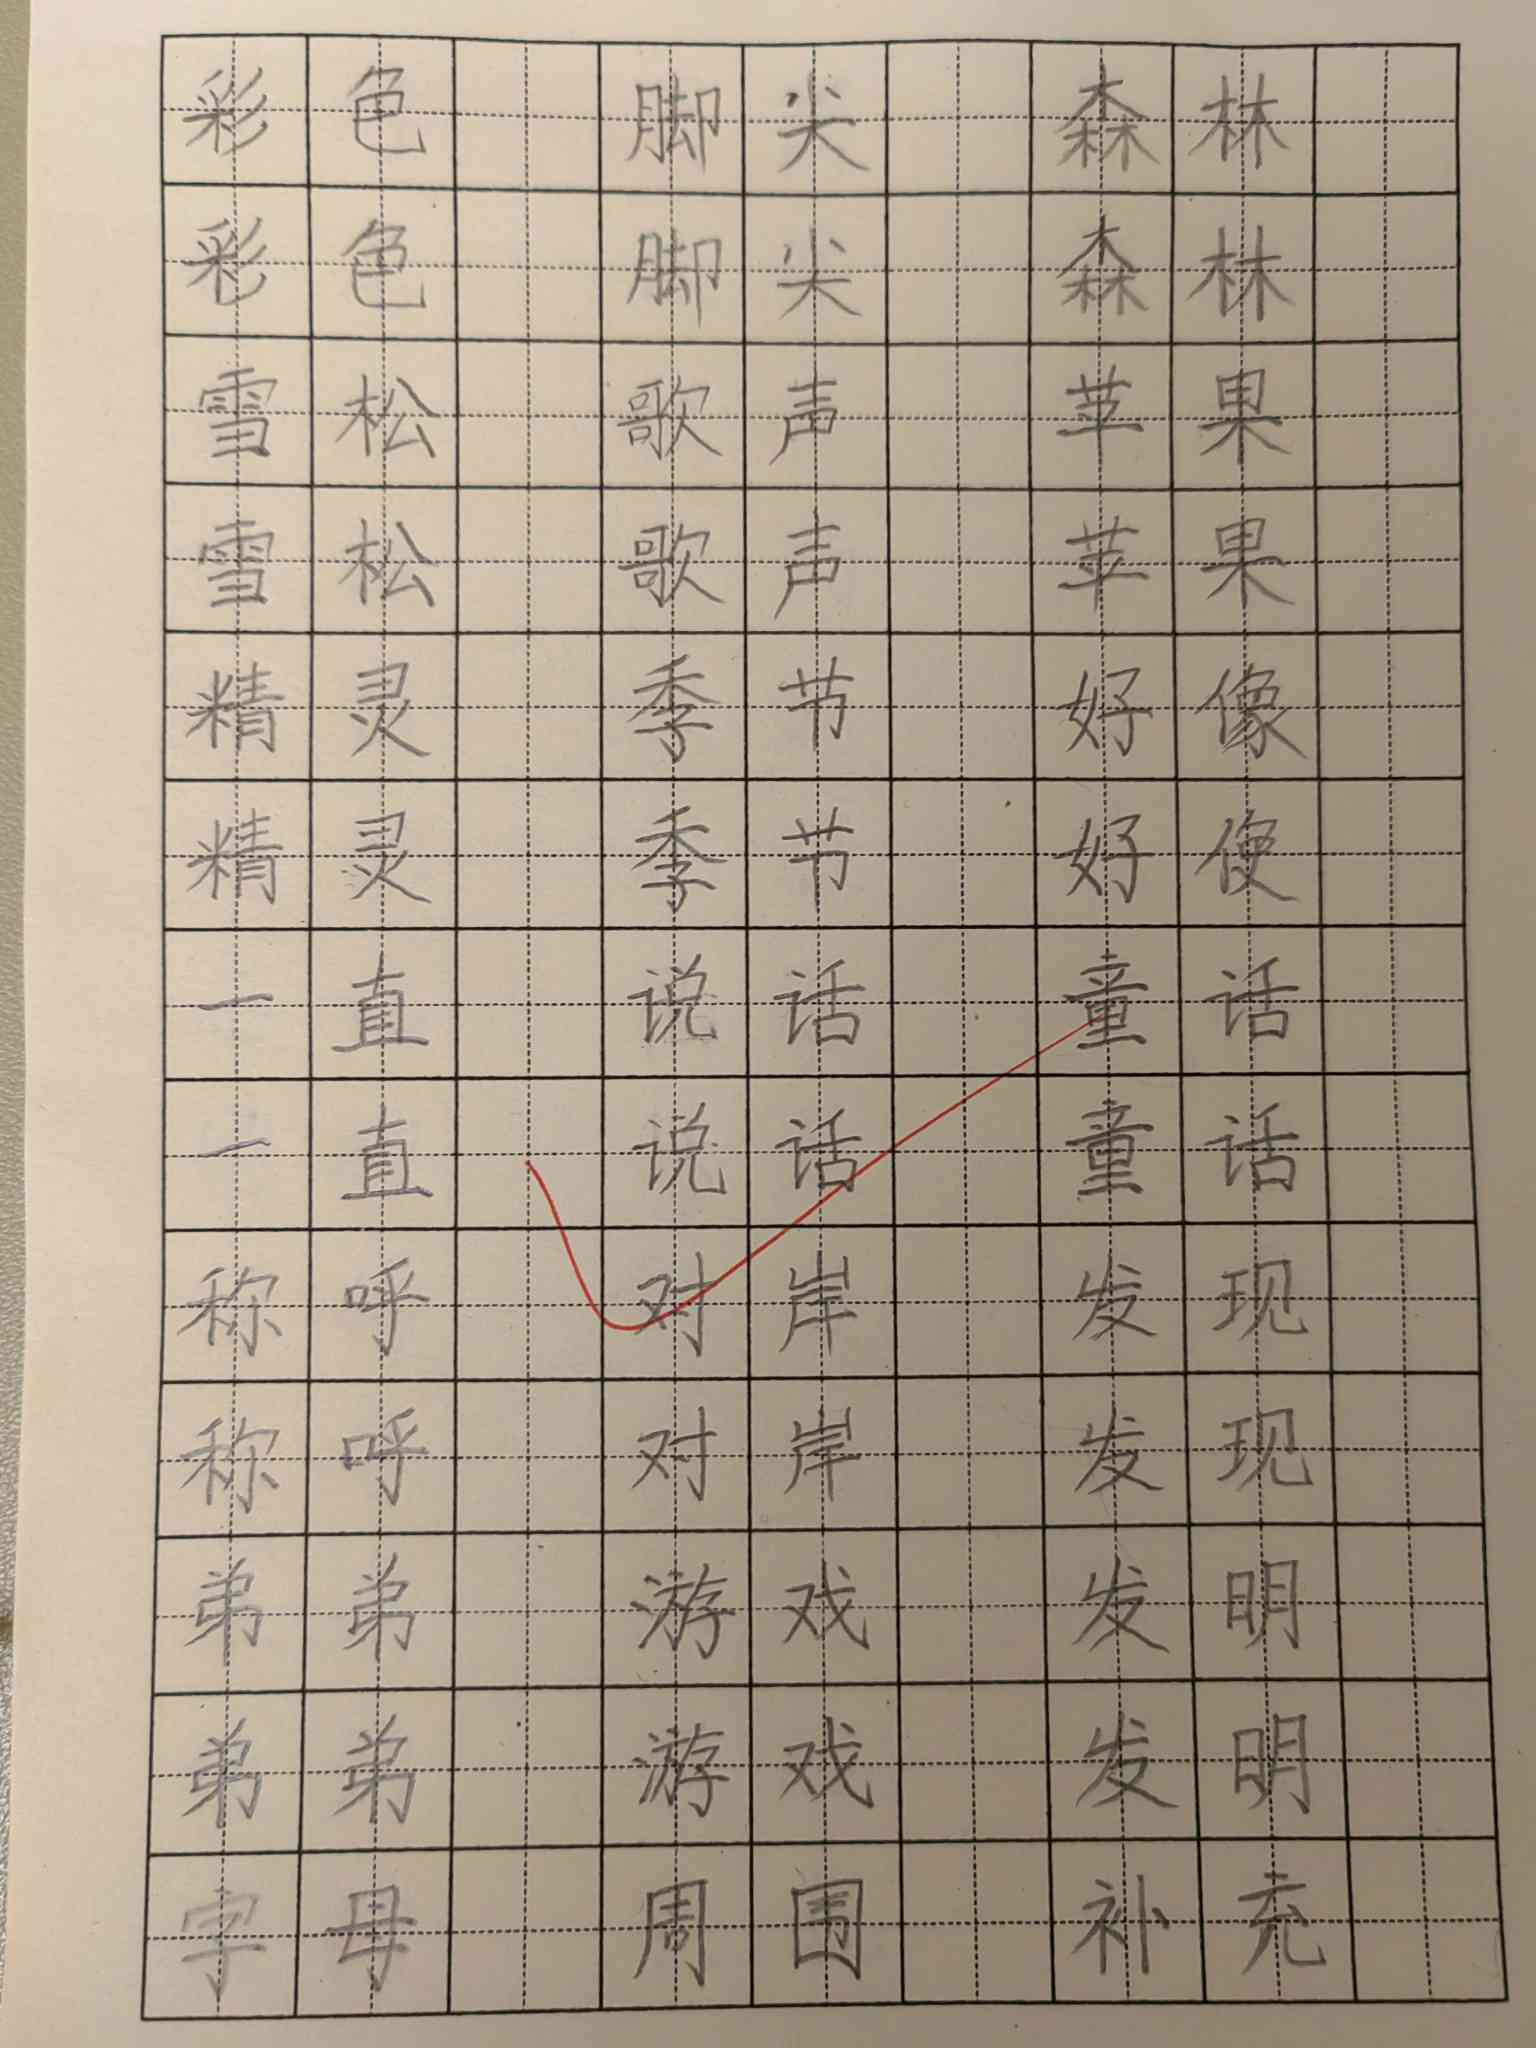 彩色 脚尖 森林
彩色 脚尖 森林
雪松 歌声 苹果
雪松 歌声 苹果
精灵 季节 好像
精灵 季节 好使
一直 说话 童话
一直 说话 童话
称呼 对岸 发现
称呼 对岸 发现
弟弟 游戏 发明
弟弟 游戏 发明
字母 周围 补充